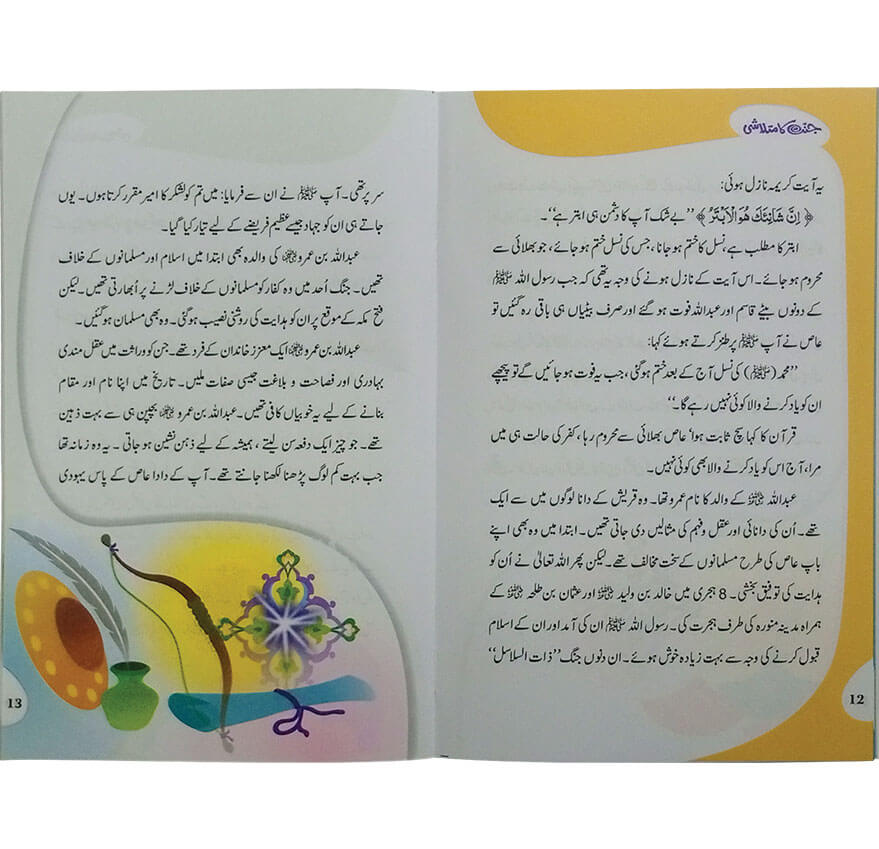 جنت کا متلاشی
یہ آیت کریمہ نازل ہوئی:
﴿ اِنَّ شَانِئَكَ هُوَ الْاَبْتَرُ ﴾ ’’بے شک آپ کا دشمن ہی ابتر ہے‘‘۔
ابتر کا مطلب ہے، نسل کا ختم ہو جانا، جس کی نسل ختم ہو جائے، جو بھلائی سے
محروم ہو جائے۔ اس آیت کے نازل ہونے کی وجہ یہ تھی کہ جب رسول اللہ ﷺ
کے دونوں بیٹے قاسم اور عبداللہ فوت ہو گئے اور صرف بیٹیاں ہی باقی رہ گئیں تو
عاص نے آپ ﷺ پر طنز کرتے ہوئے کہا:
’’محمد (ﷺ) کی نسل آج کے بعد ختم ہو گئی، جب یہ فوت ہو جائیں گے تو پیچھے
ان کو یاد کرنے والا کوئی نہیں رہے گا۔‘‘
قرآن کا کہا سچ ثابت ہوا، عاص بھلائی سے محروم رہا، کفر کی حالت ہی میں
مرا، آج اس کو یاد کرنے والا بھی کوئی نہیں۔
عبداللہ رضی اللہ عنہ کے والد کا نام عمرو تھا۔ وہ قریش کے دانا لوگوں میں سے ایک
تھے۔ اُن کی دانائی اور عقل و فہم کی مثالیں دی جاتی تھیں۔ ابتدا میں وہ بھی اپنے
باپ عاص کی طرح مسلمانوں کے سخت مخالف تھے۔ لیکن پھر اللہ تعالیٰ نے اُن کو
ہدایت کی توفیق بخشی۔ 8 ہجری میں خالد بن ولید رضی اللہ عنہ اور عثمان بن طلحہ رضی اللہ عنہ کے
ہمراہ مدینہ منورہ کی طرف ہجرت کی۔ رسول اللہ ﷺ ان کی آمد اور ان کے اسلام
قبول کرنے کی وجہ سے بہت زیادہ خوش ہوئے۔ ان دنوں جنگ ’’ذات السلاسل‘‘
12
سر پر تھی۔ آپ ﷺ نے ان سے فرمایا: میں تم کو لشکر کا امیر مقرر کرتا ہوں۔ یوں
جاتے ہی ان کو جہاد جیسے عظیم فریضے کے لیے تیار کیا گیا۔
عبداللہ بن عمرو رضی اللہ عنہ کی والدہ بھی ابتدا میں اسلام اور مسلمانوں کے خلاف
تھیں۔ جنگ اُحد میں وہ کفار کو مسلمانوں کے خلاف لڑنے پر اُبھارتی تھیں۔ لیکن
فتح مکہ کے موقع پر ان کو ہدایت کی روشنی نصیب ہو گئی۔ وہ بھی مسلمان ہو گئیں۔
عبداللہ بن عمرو رضی اللہ عنہ ایک معزز خاندان کے فرد تھے۔ جن کو وراثت میں عقل مندی
بہادری اور فصاحت و بلاغت جیسی صفات ملیں۔ تاریخ میں اپنا نام اور مقام
بنانے کے لیے یہ خوبیاں کافی تھیں۔ عبداللہ بن عمرو رضی اللہ عنہ بچپن ہی سے بہت ذہین
تھے۔ جو چیز ایک دفعہ سن لیتے، ہمیشہ کے لیے ذہن نشین ہو جاتی۔ یہ وہ زمانہ تھا
جب بہت کم لوگ پڑھنا لکھنا جانتے تھے۔ آپ کے دادا عاص کے پاس یہودی
13